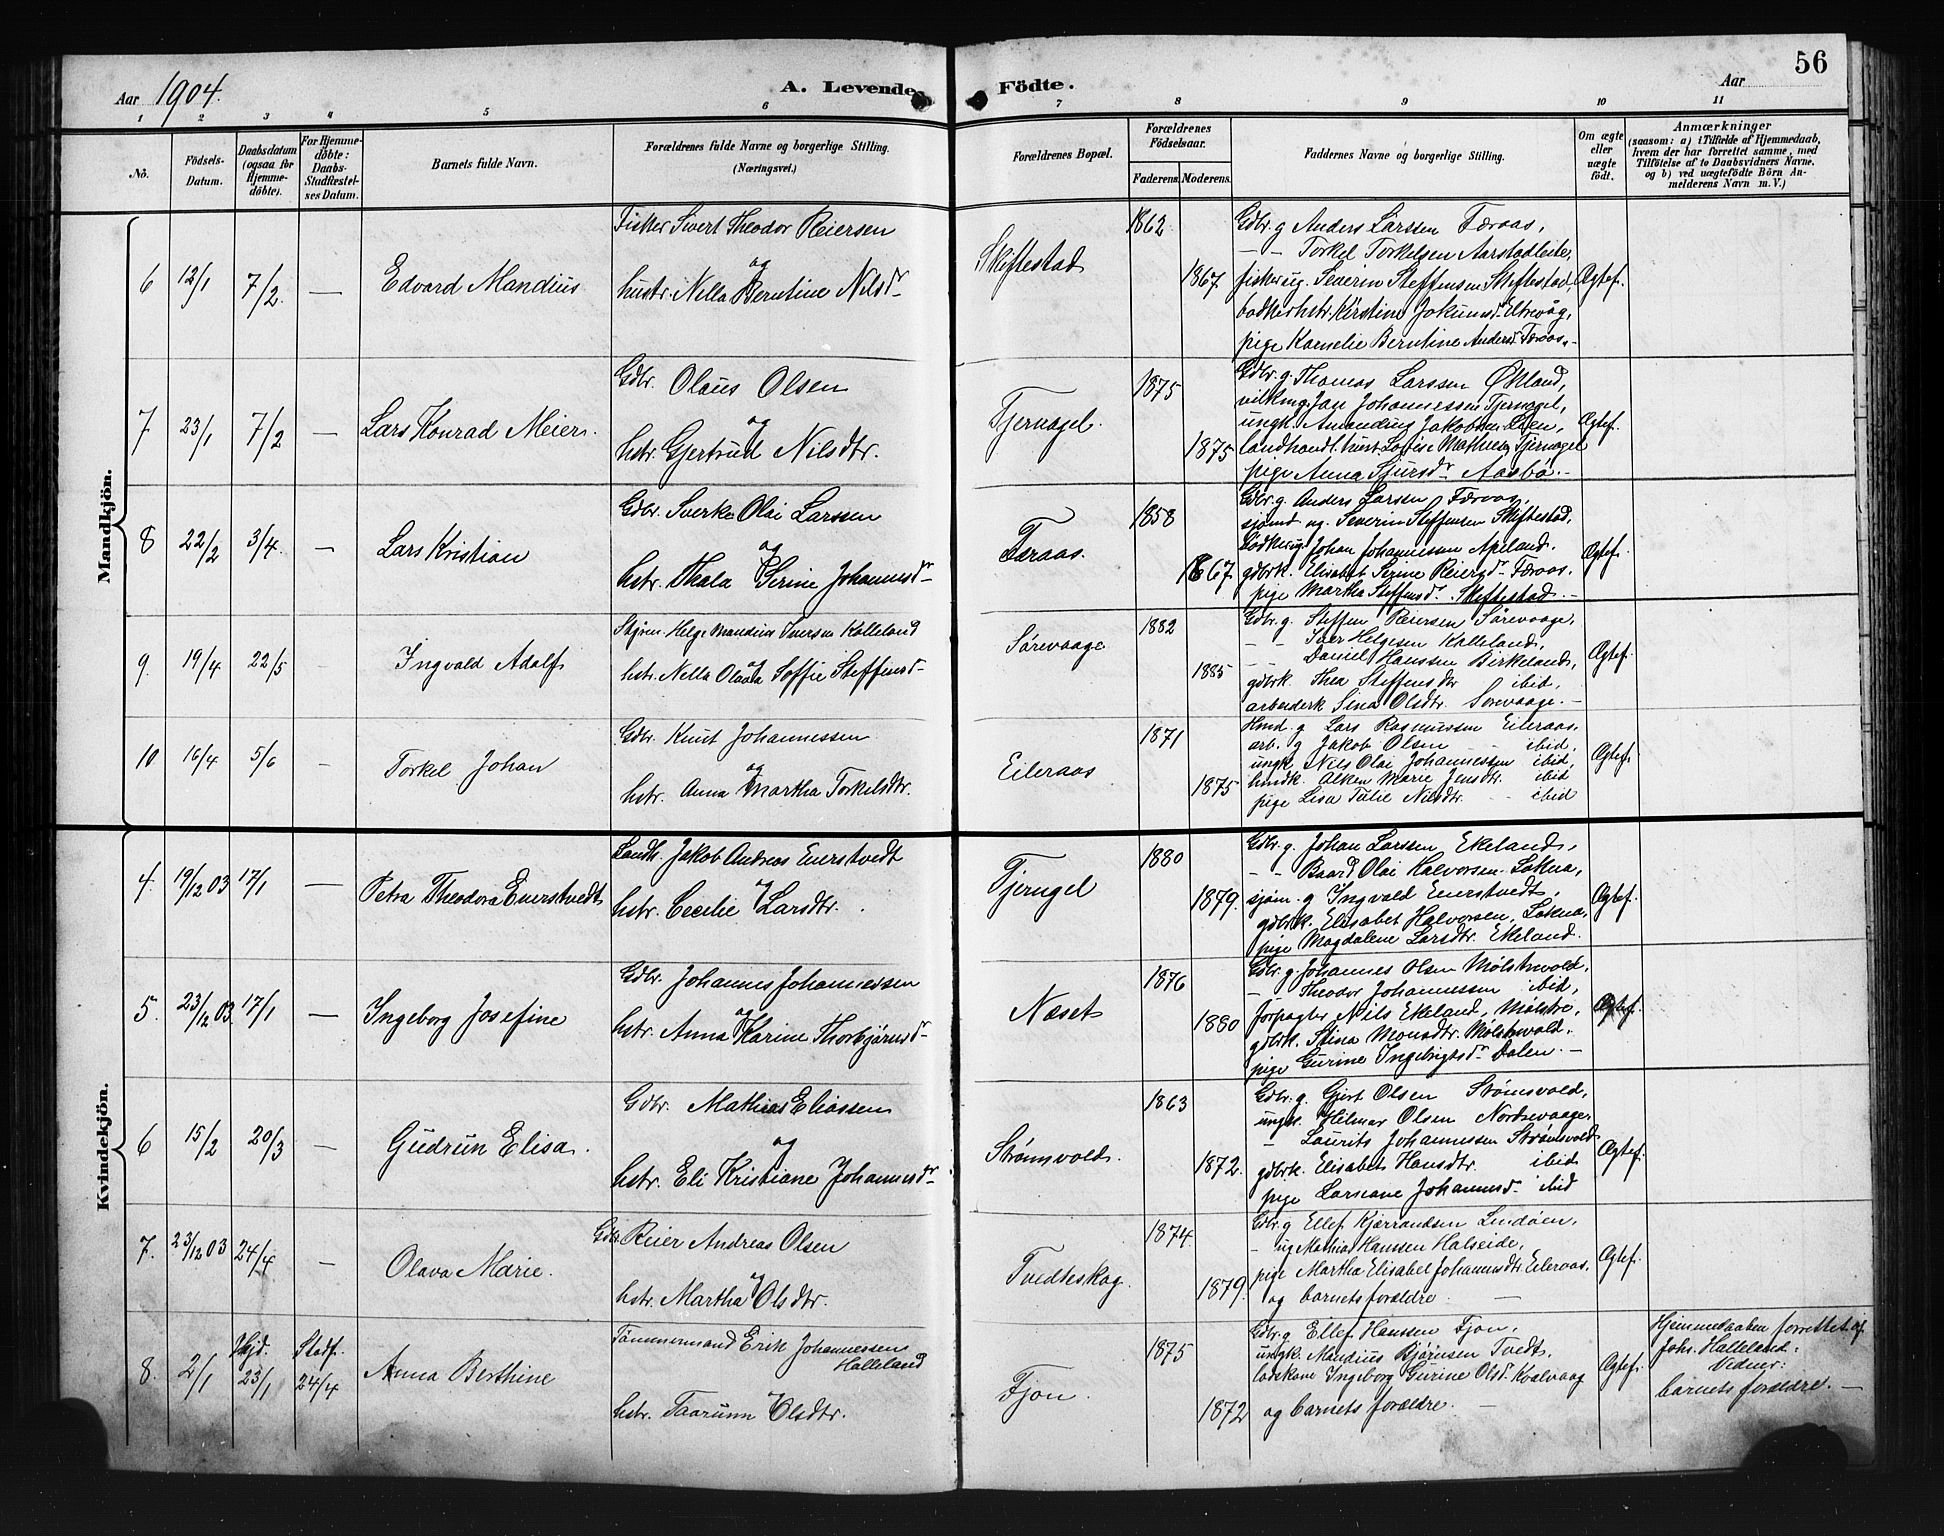 56
Aar 1904.
A. Levende Födte.
Aar
1 2 3 4 5 6 7 8 9 10 11
No.
Födsels-Datum.
Daabsdatum (ogsaa för Hjemme-döbte).
For Hjemme-döbte: Daabs-Stadfæstel-ses Datum.
Barnets fulde Navn.
Forældrenes fulde Navne og borgerlige Stilling. (Næringsvei.)
Forældrenes Bopæl.
Forældrenes Födselsaar.
Faderens. Moderens.
Faddernes Navne og borgerlige Stilling.
Om ægte eller uægte födt.
Anmærkninger
(saasom: a) i Tilfælde af Hjemmedaab, hvem der har forrettet samme, med Tilföielse af to Daabsvidners Navne, og b) ved uægtefödte Börn An-melderens Navn m. V.)
Mandkjön.
6 12/1 7/2 — Edvard Mandius
Fisker Sivert Theodor Reiersen
og
hustr. Nella Berntine Nilsdr
Skeftestad
1862
1867
Gdbr. g Anders Larssen Færaas,
— — Torkel Torkelsen Aarstadleite,
fisker ug. Severin Steffensen Skeftestad,
bødkerhstr. Kirstine Jokumsdr Eltrevåg,
pige Kornelie Berntine Andersdr Færaas.
Ægtef.
7 23/1 7/2 — Lars Konrad Meier.
Gdbr. Olaus Olsen
og
hstr. Gjertrud Nilsdtr.
Tjernagel.
1875
1875
Gdbr. g. Thomas Larssen Økland,
Jan Johannessen Tjernagel,
ungk. Amandus Jakobsen Løen,
landhandl. hust. Lovise Mathiesen Tjernagel
pige Anna Sjursdr Aasbø.
Ægtef.
8 22/2 3/4. — Lars Kristian
Gdbr. Sverke Olai Larssen
og
hstr. Thala Serine Johannesdr
Færaas.
1858
1867.
Gdbr. g. Anders Larsen Færaas,
sjømd ug. Severin Steffensen Skeftestad,
bødker ug. Johan Johannessen Apeland.
gdbrk. Elisabet Serine Reiersdr Færaas,
pige Martha Steffensdr. Skeftestad.
Ægtef.
9. 19/4 22/5 — Ingvald Adolf
Styrm. Helge Mandius Iversen Kalleland
og
hstr. Nella Olava Soffie Steffensdr
Sørevaage
1882
1885
Gdbr. g. Steffen Reiersen Sørevaage,
— — Iver Helgesen Kalleland,
— — Daniel Hanssen Birkeland,
gdbrk. Thea Steffensdtr ibid,
arbeiderk Sina Olsdtr. Sørevaage.
Ægtef.
10 16/4 5/6 — Torkel Johan
Gdbr. Knut Johannessen
og
hstr. Anna Martha Torkelsdtr.
Eileraas
1871
1875
Hmd. g Lars Rasmussen Eileraas,
arb. g Jakob Olsen ibid.
ungk. Nils Olai Johannessen ibid,
hmdk. Alken Marie Jensdtr. ibid
pige Lisa Talie Nilsdtr. ibid
Ægtef.
Kvindekjön.
4. 19/12 03 17/1 — Petra Theodora Enerstvedt
Landh. Jakob Andreas Enerstvedt
og
hstr. Cecilie Larsdtr.
Tjerngel
1880
1879.
Gdbr. g. Johan Larssen Ekeland,
— — Baard Olai Halvorsen Løkna,
sjøm. g Ingvald Enerstvedt,
gdbrk. Elisabet Halvorsen, Løkna,
pige Magdalene Larsdtr. Ekeland.
Ægtef.
5. 23/12 03 17/1 — Ingeborg Josefine
Gdbr. Johannes Johannessen
og
hstr. Anna Karine Thorbjørnsdr
Næset
1876
1880
Gdbr. g. Johannes Olsen Mølstrevold,
— Theodor Johannessen ibid,
forpagter Nils Ekeland, Mølstre,
gdbrk. Stina Monsdtr. Mølstrevold.
pige Gurine Ingebrigtsdr Dalen.
Ægtef.
6 15/2 20/3 — Gudrun Elisa.
Gdbr. Mathias Eliassen
og
hstr. Eli Kristiane Johannesdr
Strømsvold.
1863
1872.
Gdbr. g. Gjert Olsen Strømsvold,
ungk. Hilmar Olsen Nordrevaage,
— Laurits Johannessen Strømsvold
gdbrk. Elisabet Hansdtr. ibid
pige Larseane Johannesd. ibid
Ægtef.
7. 23/12 03 24/4 — Olava Marie.
Gdbr. Reier Andreas Olsen
og
hstr. Martha Olsdtr.
Tvedteskog.
1874.
1879.
Gdbr. g Ellef Kjærrandsen Lindøen,
— ug Mathias Hanssen Halseide,
pige Martha Elisabet Johannesdtr. Eileraas,
og barnets forældre.
Ægtef.
8. 2/1 Hjd. 23/1 Stadf. 24/4 Anna Berthine
Tømmermand Erik Johannessen Halleland
og
hstr. Taarunn Olsdtr.
Fjon.
1875
1872
Gdbr. g Ellef Hanssen Fjon,
ungk. Mandius Bjørnsen Tvedt,
ladskone Ingeborg Gurine Olsd. Kvalvaag
og barnets forældre.
Ægtef.
Hjemmedaaben forrettet af
Johs. Halleland.
Vidner:
barnets forældre.